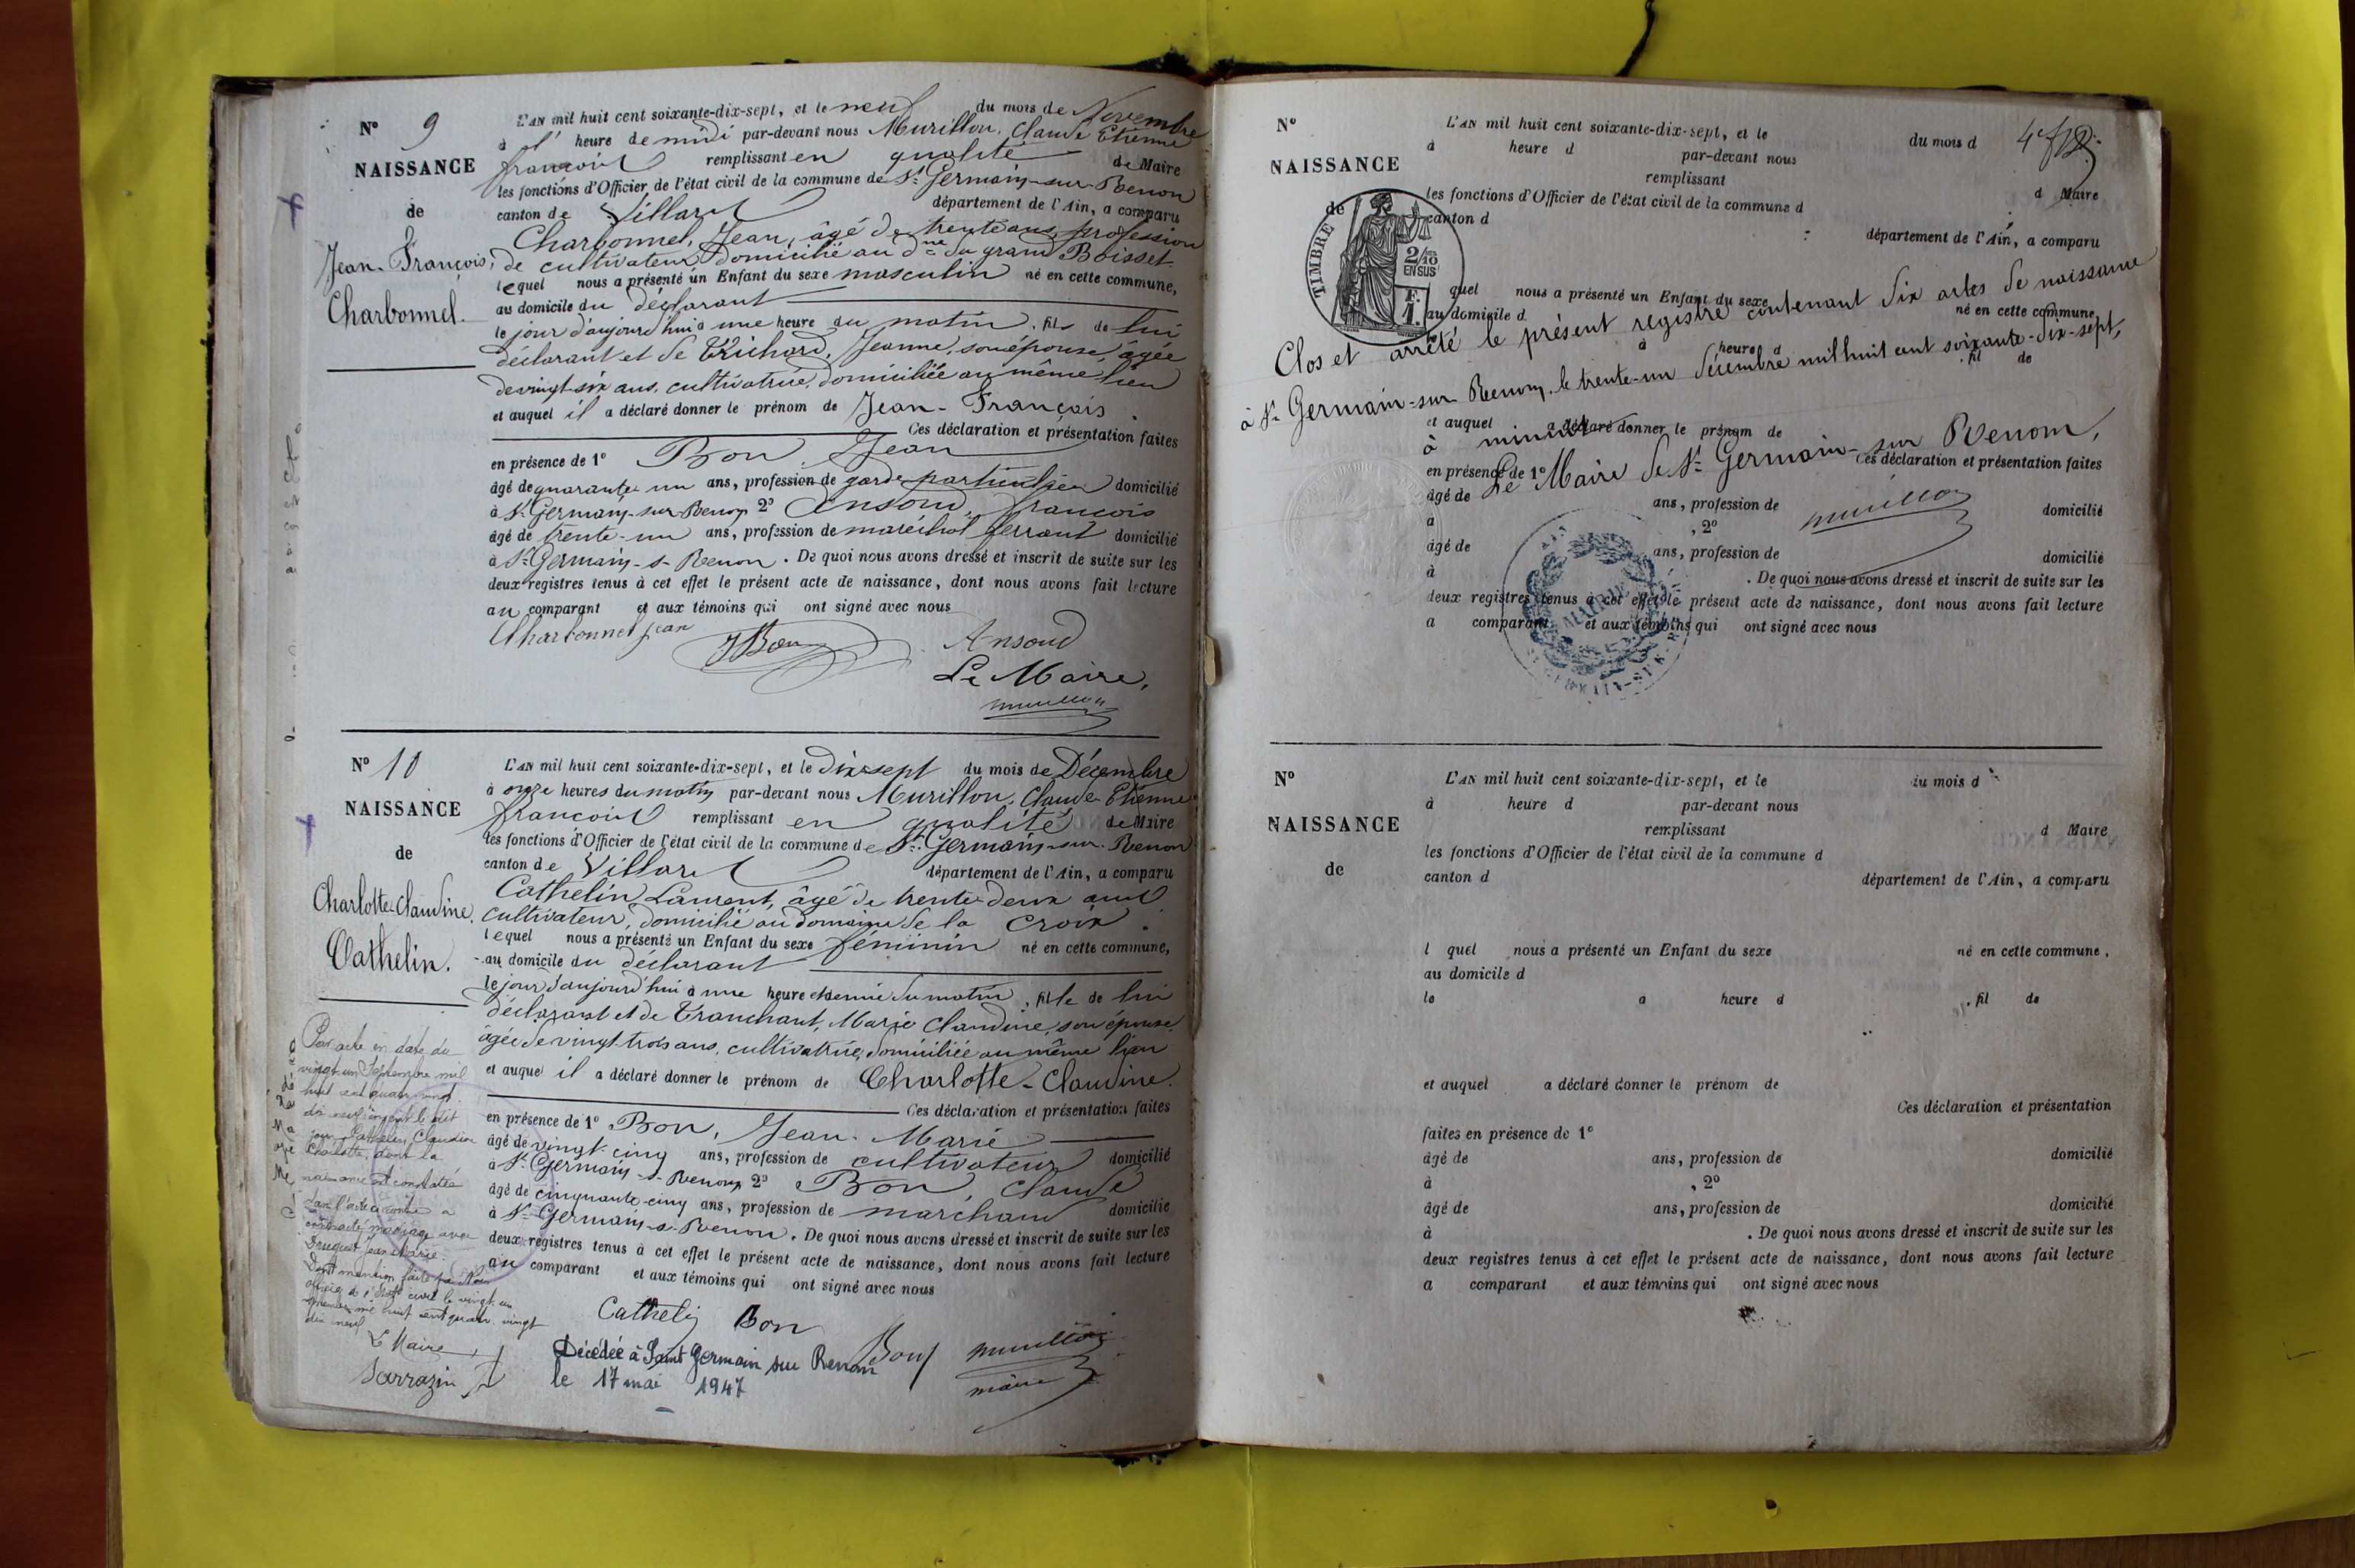 N° 9
NAISSANCE
de
Jean-François
Charbonnel.
L'AN mil huit cent soixante-dix-sept, et le neuf du mois de Novembre
à l' heure de midi par-devant nous Murillon, Claude Etienne
François remplissant en qualité de Maire
les fonctions d'Officier de l'état civil de la commune de St Germain-sur-Renon
canton de Villars département de l'Ain, a comparu
Charbonnel, Jean, âgé de trente ans, profession
de cultivateur, domicilié au dne du grand Boisset.
lequel nous a présenté un Enfant du sexe masculin né en cette commune,
au domicile du déclarant
le jour d'aujourd'hui à une heure du matin, fils de lui
déclarant et de Trichard, Jeanne, son épouse, âgée
de vingt-six ans, cultivatrice, domiciliée au même lieu
et auquel il a déclaré donner le prénom de Jean-François.
Ces déclaration et présentation faites
en présence de 1° Bon, Jean
âgé de quarante un ans, profession de garde particulier domicilié
à St Germain-sur-Renon 2° Ansoud, François
âgé de trente-un ans, profession de maréchal ferrant domicilié
à St Germain-s-Renon. De quoi nous avons dressé et inscrit de suite sur les
deux registres tenus à cet effet le présent acte de naissance, dont nous avons fait lecture
au comparant et aux témoins qui ont signé avec nous
Charbonnel jean JBon Ansoud
Le Maire,
murillon
N° 10
NAISSANCE
de
Charlotte-Claudine,
Cathelin.
L'AN mil huit cent soixante-dix-sept, et le dix-sept du mois de Décembre
à onze heures du matin par-devant nous Murillon, Claude Etienne
François remplissant en qualité de Maire
les fonctions d'Officier de l'état civil de la commune de St Germain-sur-Renon
canton de Villars département de l'Ain, a comparu
Cathelin, Laurent, âgé de trente-deux ans
cultivateur, domicilié au domaine de la Croix.
lequel nous a présenté un Enfant du sexe féminin né en cette commune,
au domicile du déclarant
le jour d'aujourd'hui à une heure et demie du matin, fille de lui
déclarant et de Tranchant, Marie Claudine, son épouse,
âgée de vingt-trois ans, cultivatrice, domiciliée au même lieu
et auquel il a déclaré donner le prénom de Charlotte-Claudine.
Ces déclaration et présentation faites
en présence de 1° Bon, Jean-Marie
âgé de vingt-cinq ans, profession de cultivateur domicilié
à St Germain-s-Renon 2° Bon, Claude
âgé de cinquante-cinq ans, profession de marchand domicilié
à St Germain-s-Renon. De quoi nous avons dressé et inscrit de suite sur les
deux registres tenus à cet effet le présent acte de naissance, dont nous avons fait lecture
au comparant et aux témoins qui ont signé avec nous
Cathelin Bon Bon murillon
maire
Par acte en date du
vingt un Septembre mil
huit cent quatre vingt
dix neuf
jour, Cathelin Claudine
Charlotte, dont la
naissance est constatée
dans l'acte ci-contre a
contracté mariage avec
Jean Marie.
Dont mention faite par Nous
officier de l'Etat civil le vingt un
Septembre mil huit cent quatre vingt
dix neuf
Le Maire,
Sarrazin
Décédée à Saint Germain sur Renon
le 17 mai 1947
N°
NAISSANCE
de
TIMBRE
2/10
EN SUS
F.
1.
L'AN mil huit cent soixante-dix-sept, et le du mois d
à heure d par-devant nous
remplissant d Maire
les fonctions d'Officier de l'état civil de la commune d
canton d département de l'Ain, a comparu
l quel nous a présenté un Enfant du sexe né en cette commune,
au domicile d
à heure d fil de
Clos et arrêté le présent registre contenant dix actes de naissance
à St Germain-sur-Renon, le trente-un Décembre mil huit cent soixante-dix-sept,
à minuit
Le Maire de St Germain-sur Renon,
murillon
et auquel a déclaré donner le prénom de
Ces déclaration et présentation faites
en présence de 1°
âgé de ans, profession de domicilié
à , 2°
âgé de ans, profession de domicilié
à . De quoi nous avons dressé et inscrit de suite sur les
deux registres tenus à cet effet le présent acte de naissance, dont nous avons fait lecture
a comparant et aux témoins qui ont signé avec nous
N°
NAISSANCE
de
L'AN mil huit cent soixante-dix-sept, et le du mois d
à heure d par-devant nous
remplissant d Maire
les fonctions d'Officier de l'état civil de la commune d
canton d département de l'Ain, a comparu
l quel nous a présenté un Enfant du sexe né en cette commune,
au domicile d
le a heure d , fil de
et auquel a déclaré donner le prénom de
Ces déclaration et présentation
faites en présence de 1°
âgé de ans, profession de domicilié
à , 2°
âgé de ans, profession de domicilié
à . De quoi nous avons dressé et inscrit de suite sur les
deux registres tenus à cet effet le présent acte de naissance, dont nous avons fait lecture
a comparant et aux témoins qui ont signé avec nous